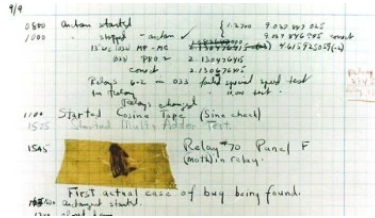 9/9
0800 Antan started
1000 " stopped - antan ✓ 9.037 846 995 correct
13"uc (032) MP-MC 4.615925059(-2)
(033) PRO 2 2.130476415
correct 2.130676415
Relays 6-2 in 033 failed special speed test
in relay " test.
Relays changed
1100 Started Cosine Tape (Sine check)
1525 Started Multi Adder Test.
1545 Relay #70 Panel F
(moth) in relay.
First actual case of bug being found.
antangent started.
1700 closed down.